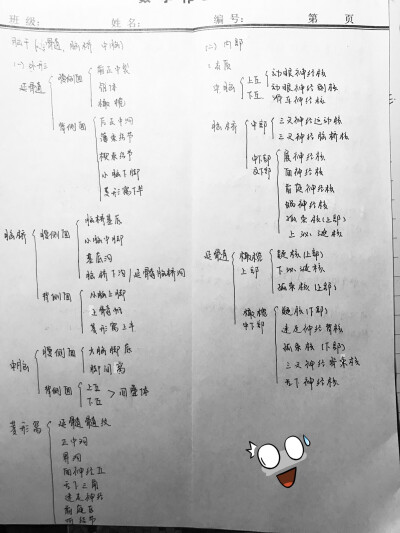 班级:
姓名:
编号:
第 页
脑干 (延髓、脑桥 中脑)
(一) 外形
延髓
腹侧面
前正中裂
锥体
橄榄
背侧面
后正中沟
薄束结节
楔束结节
小脑下脚
菱形窝下半
脑桥
腹侧面
脑桥基底
小脑中脚
基底沟
脑桥下沟/延髓脑桥沟
背侧面
小脑上脚
上髓帆
菱形窝上半
中脑
腹侧面
大脑脚底
脚间窝
背侧面
上丘
下丘
间
体
菱形窝
延髓髓纹
正中沟
界沟
面神经丘
舌下三角
迷走神经
前庭区
听结节
(二) 内部
1.灰质
中脑
上丘
动眼神经核
动眼神经副核
下丘
滑车神经核
脑桥
中部
三叉神经运动核
三叉神经脑桥核
中下部
展神经核
面神经核
前庭神经核
蜗神经核
孤束核(上部)
上泌涎核
延髓
橄榄
上部
疑核(上部)
下泌涎核
孤束核(上部)
橄榄
中下部
疑核(下部)
迷走神经背核
孤束核(下部)
三叉神经脊束核
舌下神经核